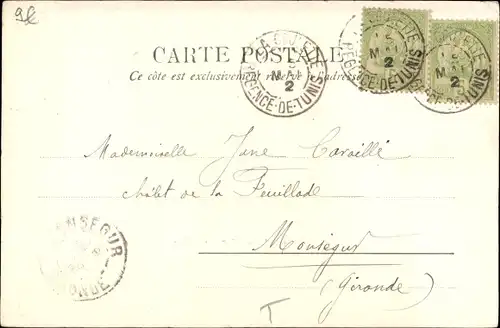 9€
CARTE POSTALE
Ce côté est exclusivement réservé à l'adresse
MAI
2
RÉGENCE-DE-TUNIS
MAI
2
RÉGENCE-DE-TUNIS
2
DE-TUNIS
Mademoiselle Jane
châlet de la Feuillade
Monségur
(Gironde)
MONSÉGUR
GIRONDE
T